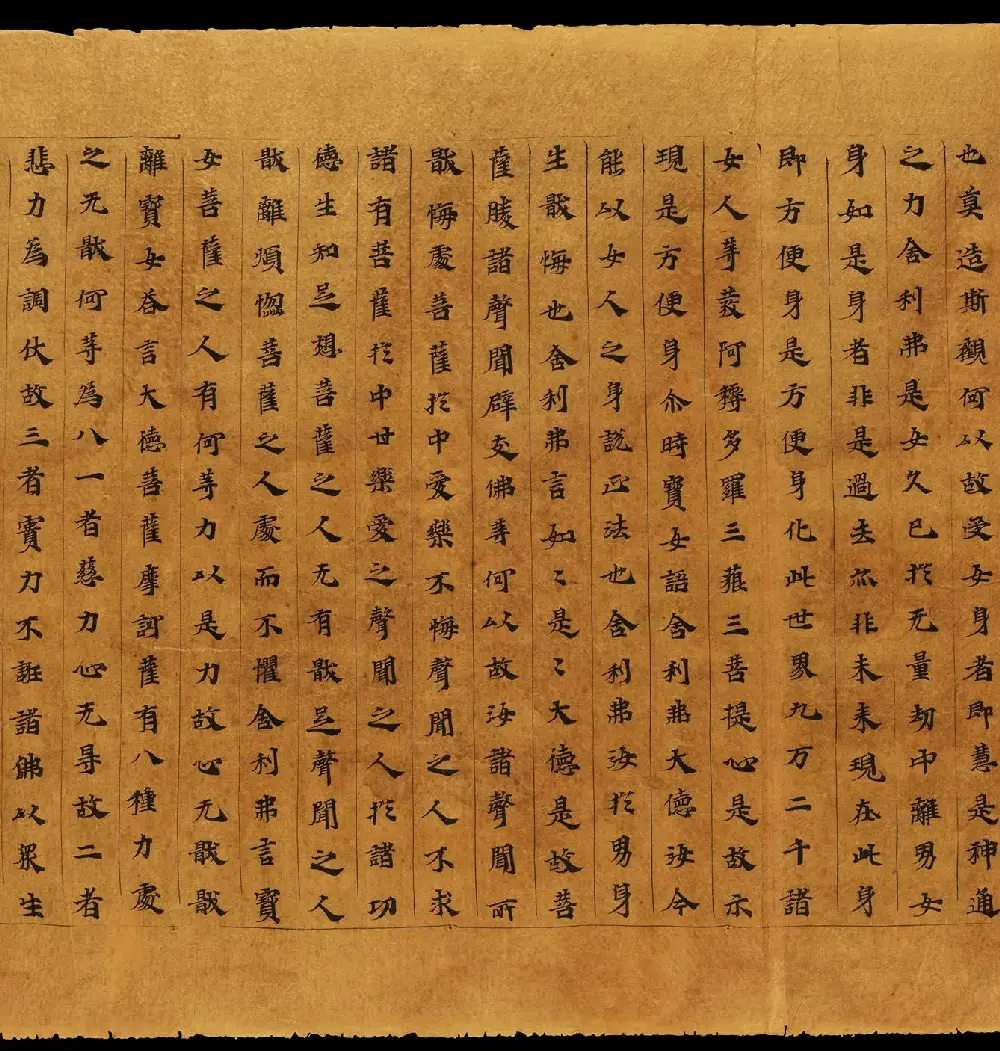 也莫造斯觀何以故受女身者即慧是神通
之力舍利弗是女久已扵无量劫中離男女
身如是身者非是過去亦非未来現在此身
即方便身是方便身化此世界九万二千諸
女人等葵阿耨多羅三藐三菩提心是故示
現是方便身尒時寶女語舍利弗大德汝今
能以女人之身說正法也舍利弗汝扵男身
生猒悔也舍利弗言如〻是〻大德是故菩
薩勝諸聲聞辟支佛等何以故汝諸聲聞所
猒悔處菩薩扵中愛樂不悔聲聞之人不求
諸有菩薩扵中世樂愛之聲聞之人扵諸功
德生知足想菩薩之人无有猒足聲聞之人
猒離煩惱菩薩之人處而不懼舍利弗言寶
女菩薩之人有何等力以是力故心无猒猒
離寶女荅言大德菩薩摩訶薩有八種力處
之无猒何等為八一者慈力心无㝵故二者
悲力為調伏故三者實力不誑諸佛以衆生